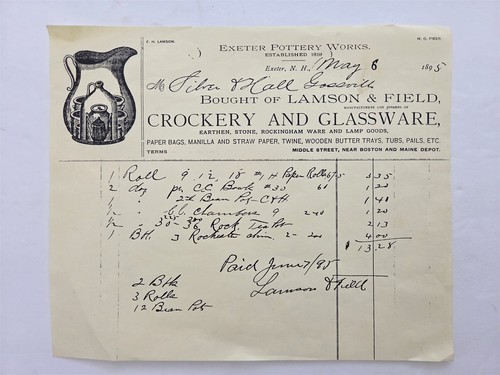 F. H. LAMSON.
W. G. FIELD.
EXETER POTTERY WORKS.
ESTABLISHED
Exeter, N. H., May 6 1895
M Silver & Hall
BOUGHT OF LAMSON & FIELD,
MANUFACTURERS AND JOBBERS OF
CROCKERY AND GLASSWARE,
EARTHEN, STONE, ROCKINGHAM WARE AND LAMP GOODS,
PAPER BAGS, MANILLA AND STRAW PAPER, TWINE, WOODEN BUTTER TRAYS, TUBS, PAILS, ETC.
TERMS MIDDLE STREET, NEAR BOSTON AND MAINE DEPOT.
1 Roll 9 12 18 #1 H Paper Rolls 3 35
2 doz pr C.C. Bowls #30 60 1 20
1 " 2 qt Bean Pot C&H 1 40
1/2 " C.C. Chambers 9 240 1 20
1/2 " 30 - 36 Rock. Tea Pot 2 13
1 Bbl. 3 Rochester 2-200 4 00
$13.28
Paid June 7/95
Lamson & Field
2 Bbls
3 Rolls
12 Bean Pots